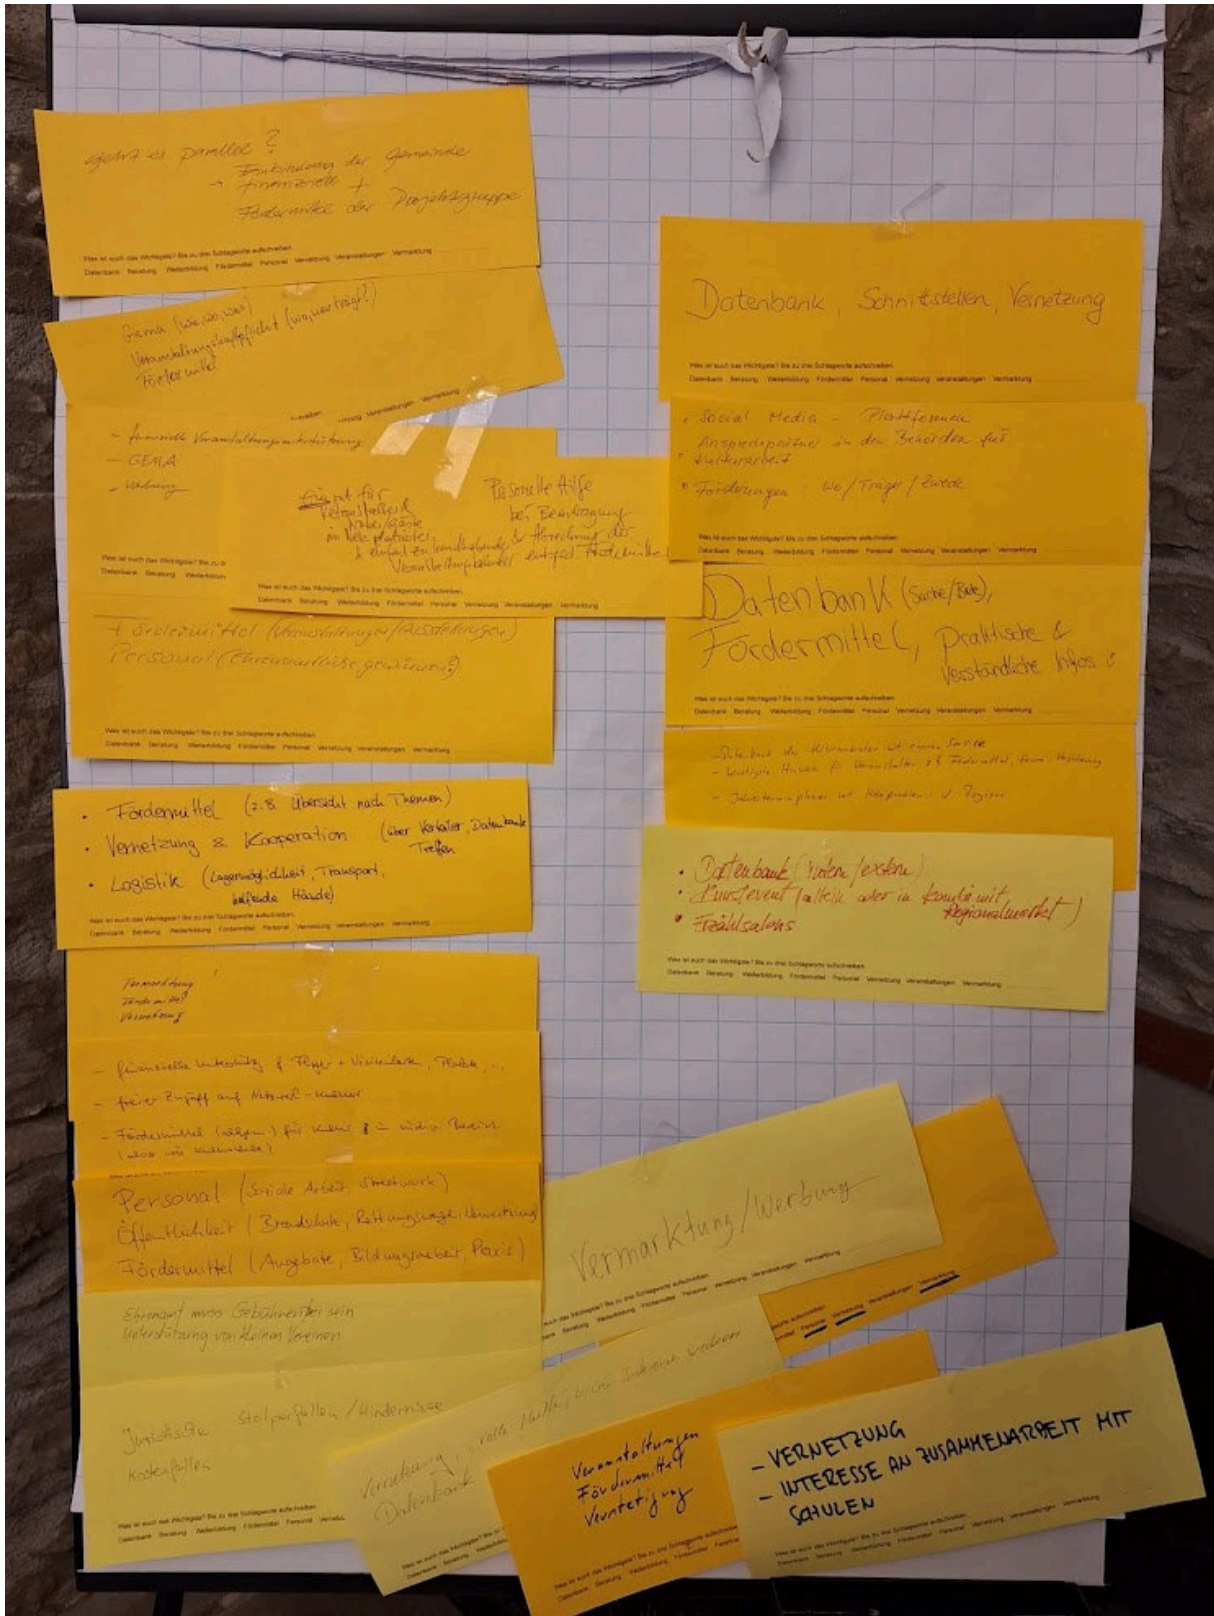 geht es parallel?
→ Einbindung der Gemeinde
finanziell +
Fördermittel der Projektgruppe
Was ist euch das Wichtigste? Bis zu drei Schlagworte aufschreiben.
Datenbank Beratung Weiterbildung Fördermittel Personal Vernetzung Veranstaltungen Vermarktung
Gema (wie, wo, was)
Veranstaltungshaftpflicht (wo, wer trägt?)
Fördermittel
Veranstaltungen Vermarktung
- finanzielle Veranstaltungsunterstützung
- GEMA
- Werbung
Was ist euch das Wichtigste? Bis zu d
Datenbank Beratung Weiterbildun
gut für
Veranstalter &
Nutzer/Gäste
im Netz platzierter
& einfach zu handhabende
Veranstaltungskalender
Personelle Hilfe
bei Beantragung
& Abrechnung der
Was ist euch das Wichtigste? Bis zu drei Schlagworte aufschreiben.
Datenbank Beratung Weiterbildung Fördermittel Personal Vernetzung Veranstaltungen Vermarktung
Fördermittel (Veranstaltungen/Ausstellungen)
Personal (Ehrenamtliche gewinnen?)
Was ist euch das Wichtigste? Bis zu drei Schlagworte aufschreiben.
Datenbank Beratung Weiterbildung Fördermittel Personal Vernetzung Veranstaltungen Vermarktung
• Fördermittel (z.B. Übersicht nach Themen)
• Vernetzung & Kooperation (über Verteiler, Datenbank
Treffen
• Logistik (Lagermöglichkeit, Transport,
helfende Hände)
Was ist euch das Wichtigste? Bis zu drei Schlagworte aufschreiben.
Datenbank Beratung Weiterbildung Fördermittel Personal Vernetzung Veranstaltungen Vermarktung
Vermarktung
Fördermittel
Vernetzung
- finanzielle Unterstütz. f. Flyer + Visitenkarten, Plakate, ...
- freier Zugriff auf Netzwerk-
- Fördermittel für Bereich
Personal (Soziale Arbeit, Streetwork)
Öffentlichkeit (Brandschutz, Rettungswege,
Fördermittel (Angebote, Bildungsarbeit, Praxis)
Ehrenamt muss Gebührenfrei sein
Unterstützung von kleinen Vereinen
Juristische Stolperfallen / Hindernisse
Kostenfallen
Was ist euch das Wichtigste? Bis zu drei Schlagworte aufschreiben.
Datenbank Beratung Weiterbildung Fördermittel Personal
Datenbank, Schnittstellen, Vernetzung
Was ist euch das Wichtigste? Bis zu drei Schlagworte aufschreiben.
Datenbank Beratung Weiterbildung Fördermittel Personal Vernetzung Veranstaltungen Vermarktung
• Social Media - Plattformen
• Ansprechpartner in den Behörden für
Kulturarbeit
• Förderungen: wo/Träger/Zweck
Was ist euch das Wichtigste? Bis zu drei Schlagworte aufschreiben.
Datenbank Beratung Weiterbildung Fördermittel Personal Vernetzung Veranstaltungen Vermarktung
Datenbank (Suche/Biete),
Fördermittel, praktische &
verständliche Infos
Was ist euch das Wichtigste? Bis zu drei Schlagworte aufschreiben.
Datenbank Beratung Weiterbildung Fördermittel Personal Vernetzung Veranstaltungen Vermarktung
- Datenbank der Kulturanbieter mit Service
- wichtigste Hinweise für Veranstalter z.B. Fördermittel, Gema, Versicherung
- Jahresterminplaner mit Höhepunkten i. d. Region
• Datenbank (intern/extern)
• Kunstevent (allein oder in Kombi mit
Regionalmarkt)
• Erzählsalons
Was ist euch das Wichtigste? Bis zu drei Schlagworte aufschreiben.
Datenbank Beratung Weiterbildung Fördermittel Personal Vernetzung Veranstaltungen Vermarktung
Vermarktung/Werbung
euch das Wichtigste? Bis zu drei Schlagworte aufschreiben.
Beratung Weiterbildung Fördermittel Personal Vernetzung Veranstaltungen Vermarktung
aufschreiben.
Personal Vernetzung Veranstaltungen Vermarktung
Vernetzung, Interesse wecken
Datenbank
Was ist euch das Wichtigste? Bis zu
Datenbank Beratung Weiterbild
Veranstaltungen
Fördermittel
Verstetigung
Was ist euch das Wichtigste? Bis zu drei Schlagworte aufschreiben.
Datenbank Beratung Weiterbildung Fördermittel Personal
- VERNETZUNG
- INTERESSE AN ZUSAMMENARBEIT MIT
SCHULEN
Was ist euch das Wichtigste? Bis zu drei Schlagworte aufschreiben.
Datenbank Beratung Weiterbildung Fördermittel Personal Vernetzung Veranstaltungen Vermarktung